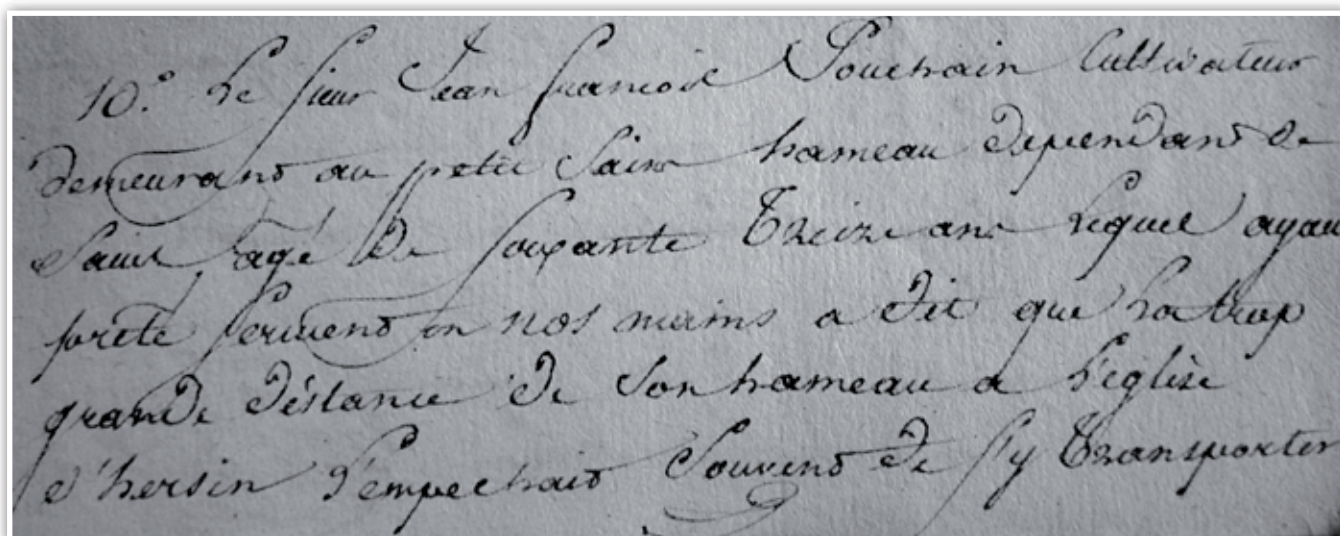 10.° Le sieur Jean francois Souchain Cultivateur
demeurant au petit Sains hameau dependant de
Sains agé de soixante Treize ans Lequel ayant
preté serment en nos mains a dit que La trop
grande distance de Son hameau a L'eglise
d'hersin L'empechait Souvent de s'y Transporter